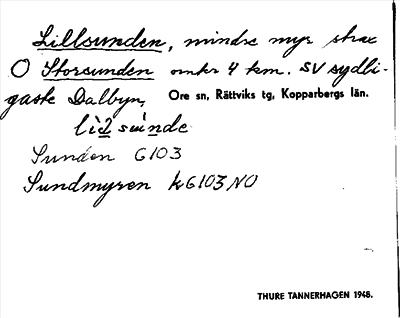 Lillsunden, mindre myr strax
O Storsunden omkr 4 km. SV sydli-
gaste Dalbyn, Ore sn, Rättviks tg, Kopparbergs län.
Sunden G103
Sundmyren kG103NO
THURE TANNERHAGEN 1948.